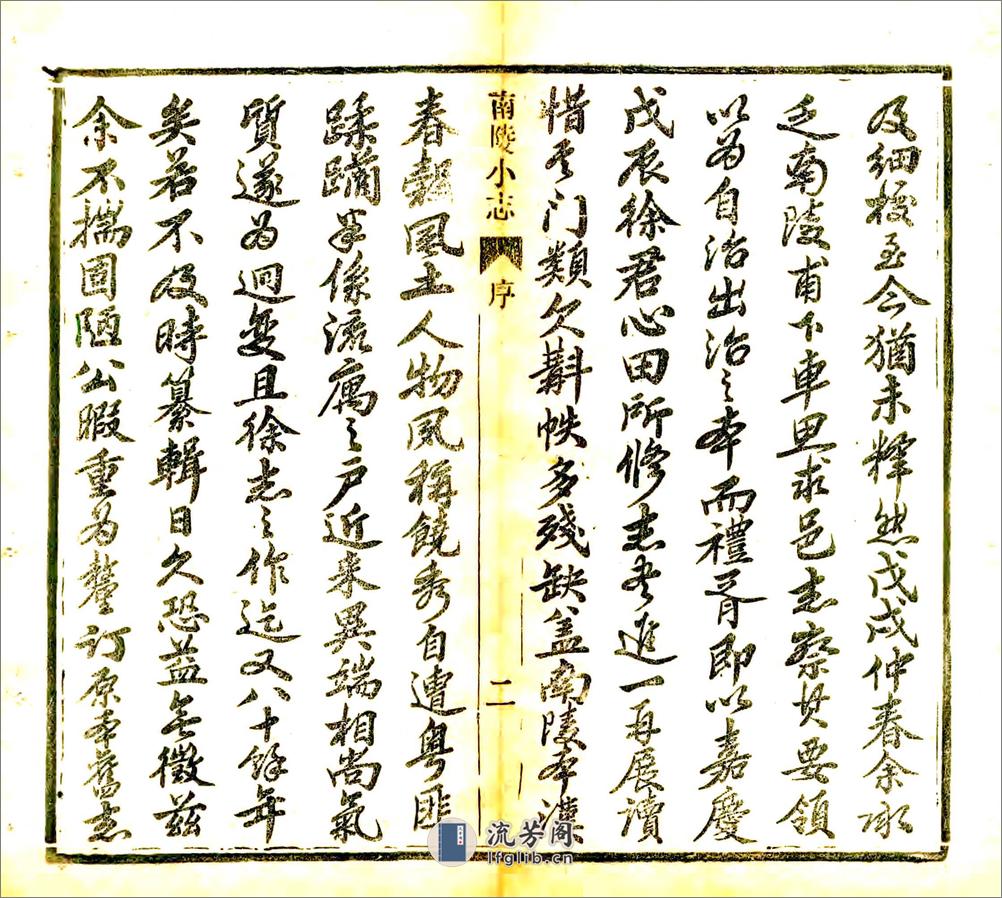 及細援至今猶未釋然戊戌仲春余承
乏南陵甫下車思求邑志察其要領
以為自治出治之本而禮胥即以嘉慶
戊辰徐君心田所修志書進一再展讀
惜其門類欠斠帙多殘缺蓋南陵本漢
南陵小志
序
二
春穀風土人物夙稱饒秀自遭粵匪
蹂躪半係流寓之戶近來異端相尚氣
質遂為迥變且徐志之作迄又八十餘年
矣若不及時纂輯日久恐益無徵茲
余不揣固陋公暇重為釐訂原本舊志
流芳阁
lfglib.cn